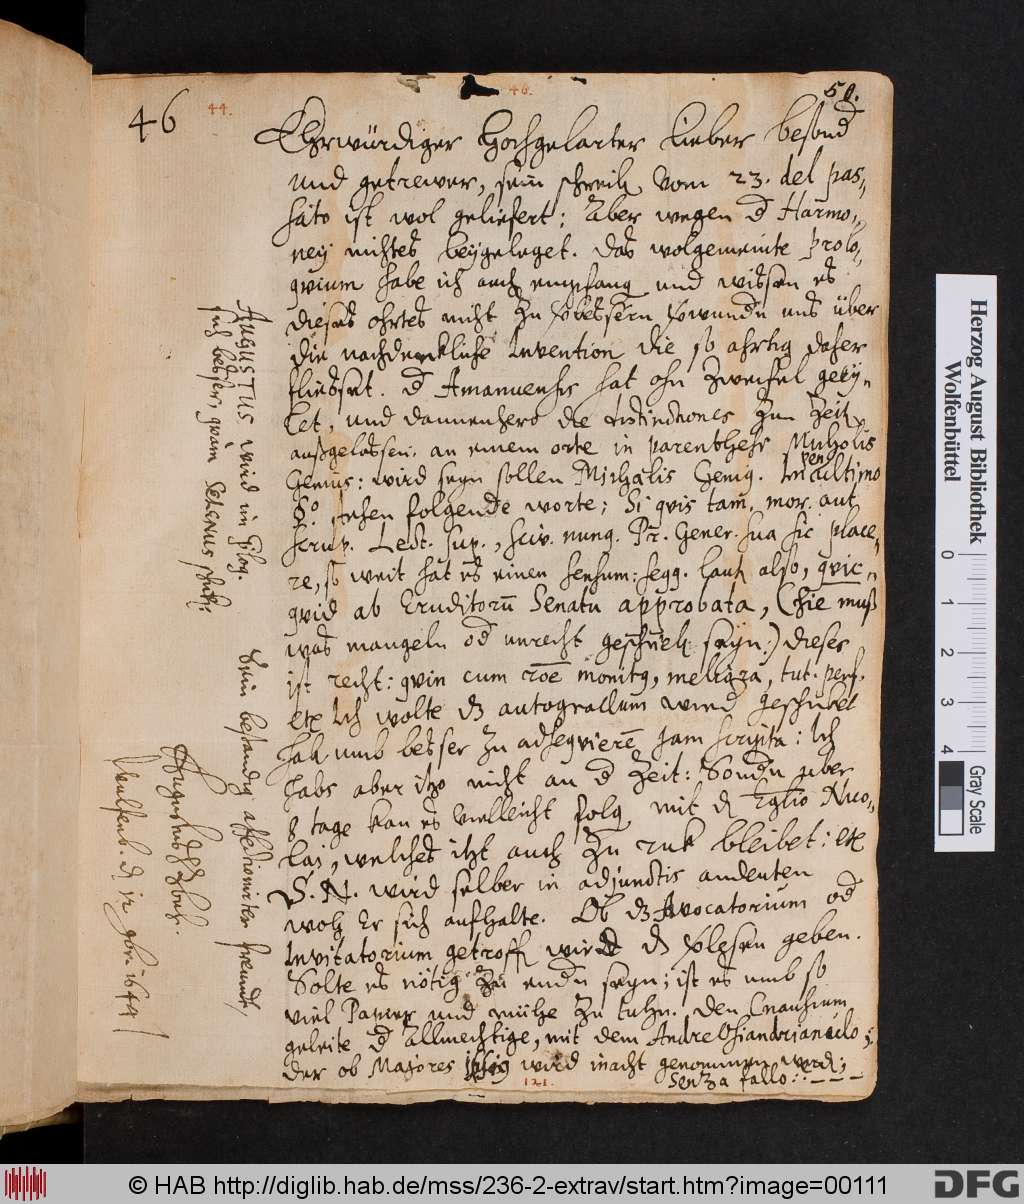 46
44.
46.
50.
Ehrwürdiger Hochgelarter Lieber besond
und getrewer, sein schreib vom 23. del pas,,
sato ist wol geliefert: Aber wegen d Harmo,,
ney nichtes beygeleget. Das wolgemeinte prolo,,
qvium habe ich auch empfang und wissen es
dieses ohrtes nicht zu verbessern verwundn uns über
die nachdenckliche Invention die so ahrtig daher
fliesset. d Amanuensis hat ohn Zweifel geey,,
let, und dannenhero die distinctiones zur Zeit
außgelassen, an einem orte in parenthesi
Genius: wird seyn sollen Michalis Genig. In penultimo
§o. stehen folgende worte; Si qvis tam, mor. aut
scrup. Lect. sup., sciv. nunq. Pr. Gener. sua sic place,,
re, so weit hat es einen sensum: seqq. laut also, qvic,,
qvid ab Eruditorū Senatu approbata, (hie muß
was mangeln od unrecht geschrieb seyn:) dieses
ist recht: qvin cum monitg, meliora, tut. perf.
etc Ich wolte dz wird geschubet
hab umb besser zu adseqviern jam scripta: Ich
habs aber itzo nicht an d Zeit: Sondn uber
8 tage kan es vielleicht folg mit d Nico,,
lai, welches itzt auch zu ruk bleibet: etc
S. N. wird selber in adjunctis andeuten
woh Er sich aufhalte. Ob dz Avocatorium od
Invitatorium getroff wird d verlesen geben.
Solte es nötig zu endn seyn; ist es umb so
viel Papier und mühe zu tuhn. Den
geleite d Allmechtige, mit dem Andre Osiandrianculo;
der ob Majores ipsig wird inacht genommen werd;
Senza fallo: :---
121.
AUGUSTUS wird im Epilog.
sich besser, qvam SELENUS schick.
Sein bestendig affectioniter freundt,
Augustus HzBrL.
Wulfenb. d. 1644
Herzog August Bibliothek
Wolfenbüttel
0
1
2
3
4
Gray Scale
© HAB http://diglib.hab.de/mss/236-2-extrav/start.htm?image=00111
DFG